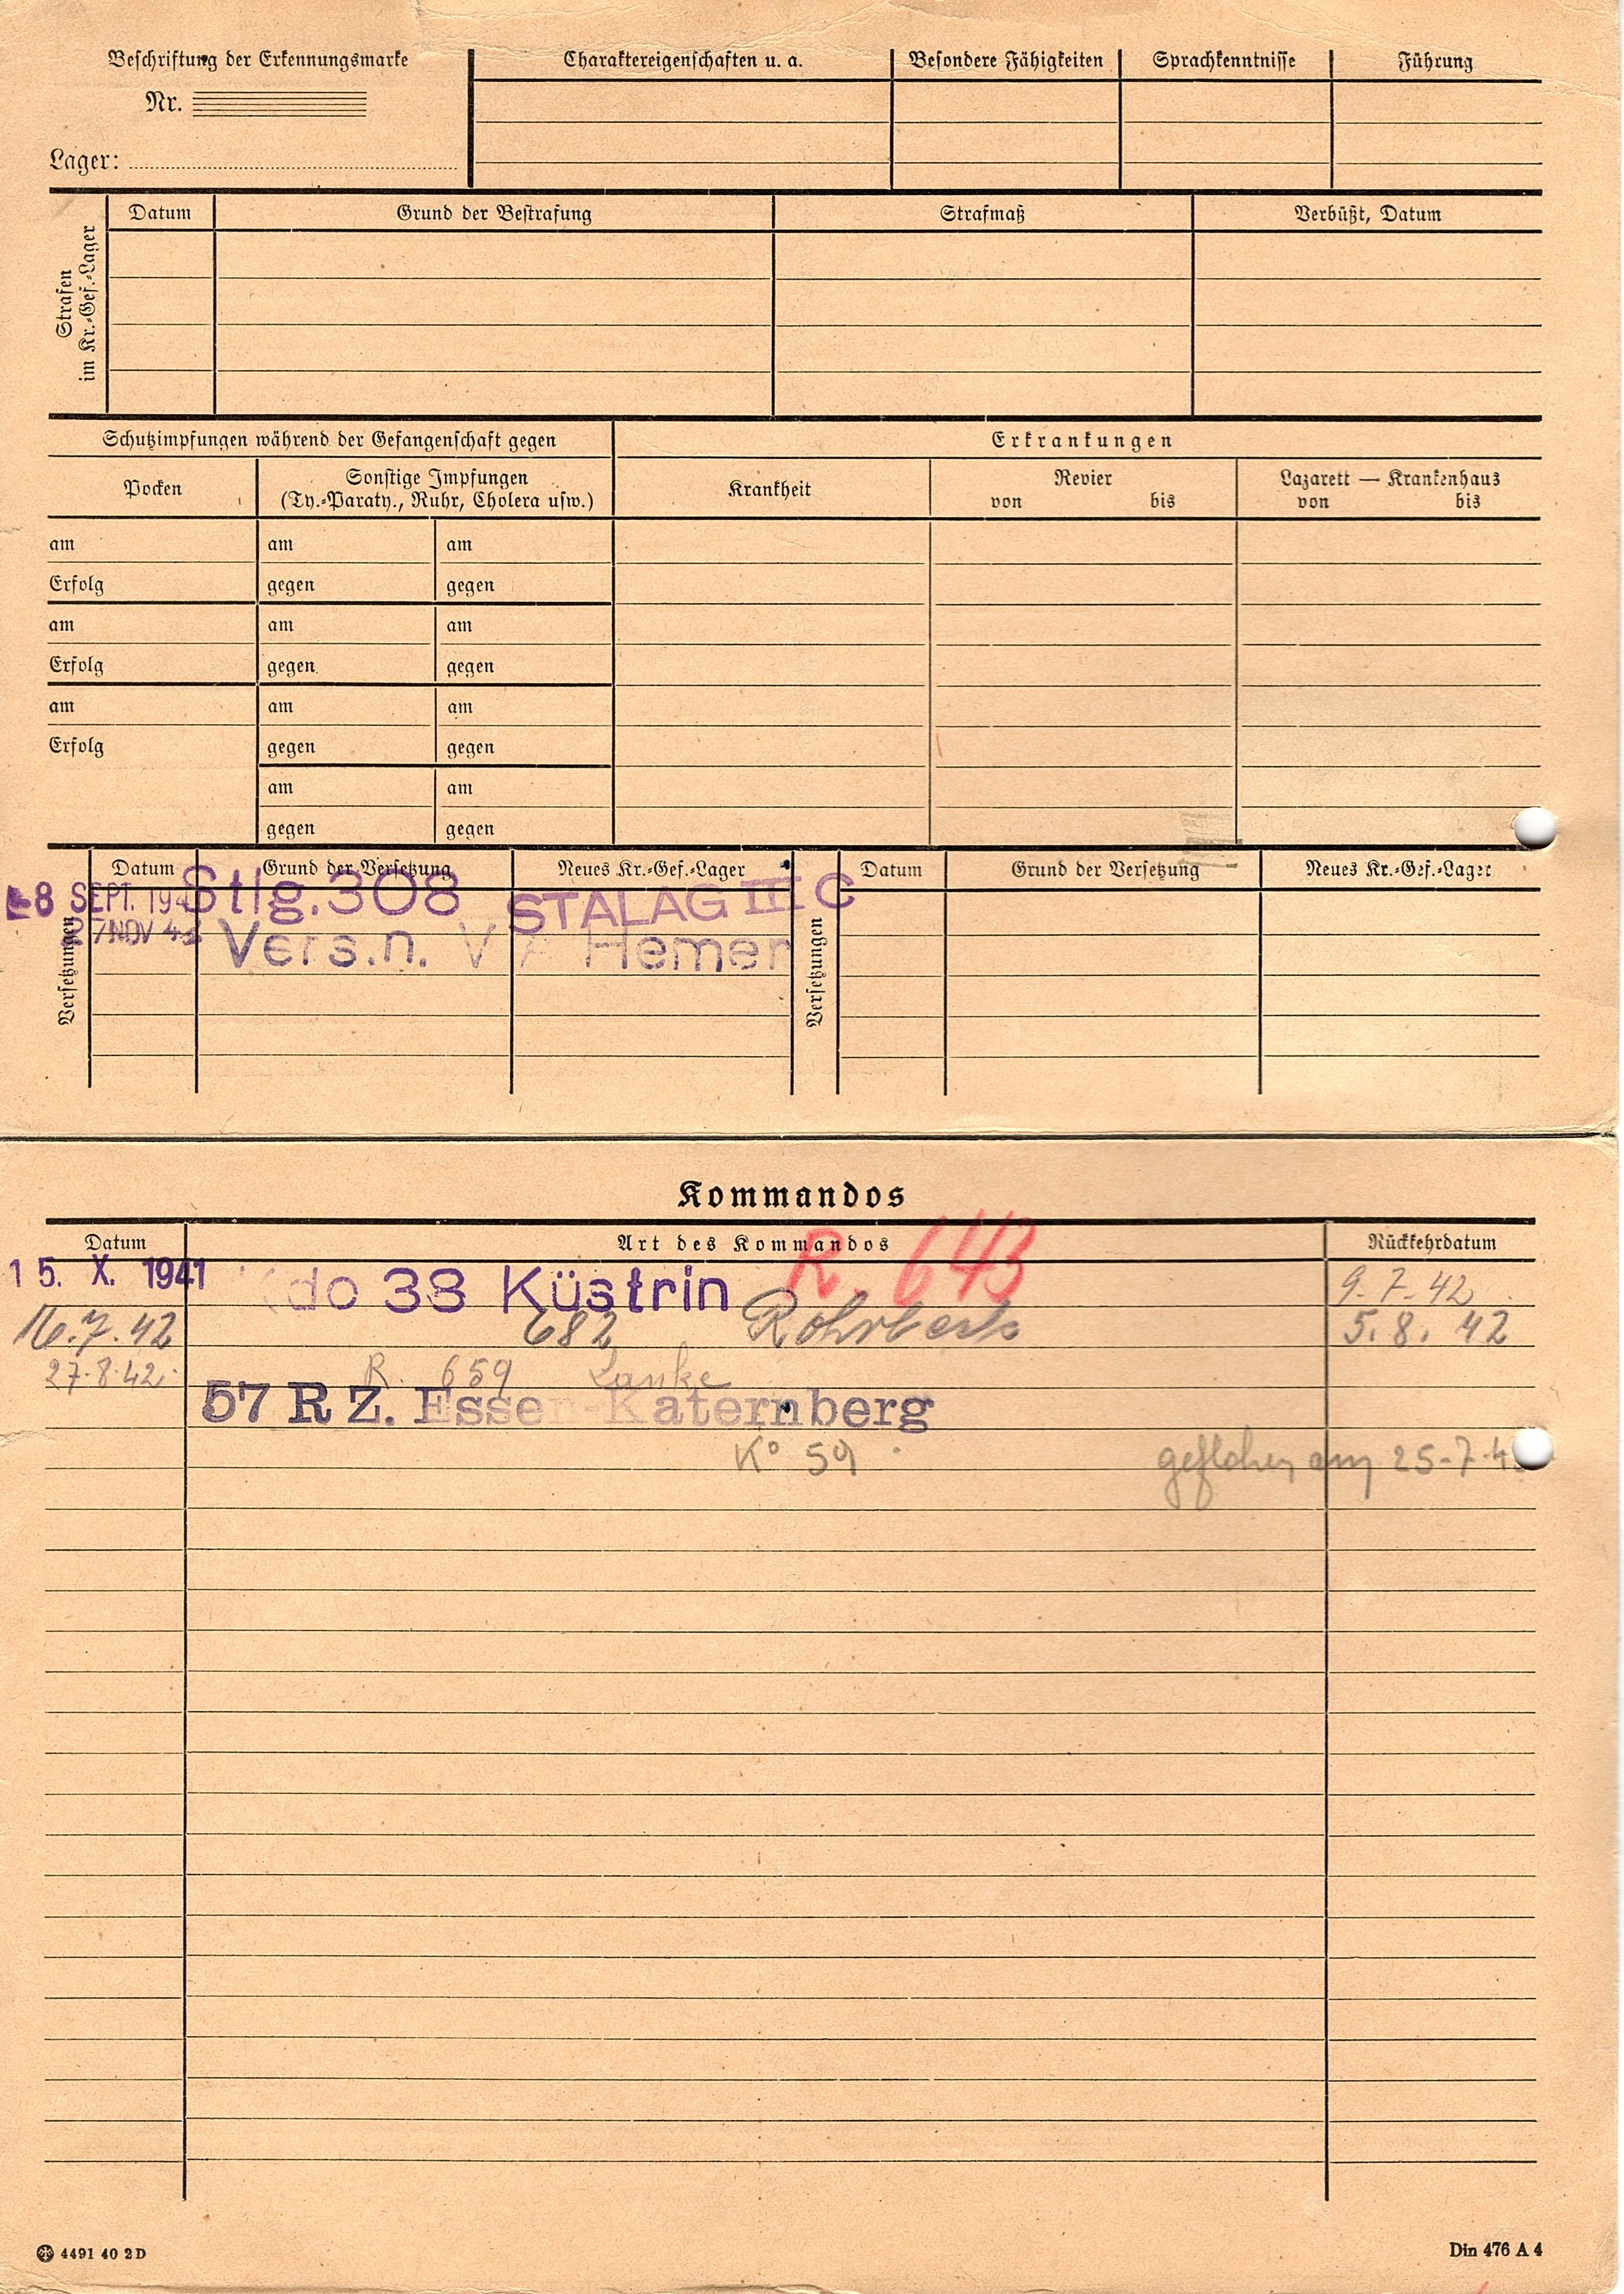 Beschriftung der Erkennungsmarke
Nr.
Lager:
Charaktereigenschaften u. a.
Besondere Fähigkeiten
Sprachkenntnisse
Führung
Strafen
im Kr.-Gef.-Lager
Datum
Grund der Bestrafung
Strafmaß
Verbüßt, Datum
Schutzimpfungen während der Gefangenschaft gegen
Erkrankungen
Pocken
Sonstige Impfungen
(Ty.-Paraty., Ruhr, Cholera usw.)
Krankheit
Revier
von bis
Lazarett — Krankenhaus
von bis
am am am
Erfolg gegen gegen
am am am
Erfolg gegen gegen
am am am
Erfolg gegen gegen
am am
gegen gegen
Versetzungen
Datum Grund der Versetzung Neues Kr.-Gef.-Lager
8 SEPT. 194 Stlg. 308 STALAG III C
27 NOV 42 Vers.n. VI A Hemer
Versetzungen
Datum Grund der Versetzung Neues Kr.-Gef.-Lager
Kommandos
Datum Art des Kommandos Rückkehrdatum
15. X. 1941 Kdo 38 Küstrin R. 643 9.7.42
16.7.42 682 Rohrbeck 5.8.42
27.8.42. R. 659 Lanke
57 R Z. Essen-Katernberg
K° 59 geflohen am 25-7-4
4491 40 2D
Din 476 A 4